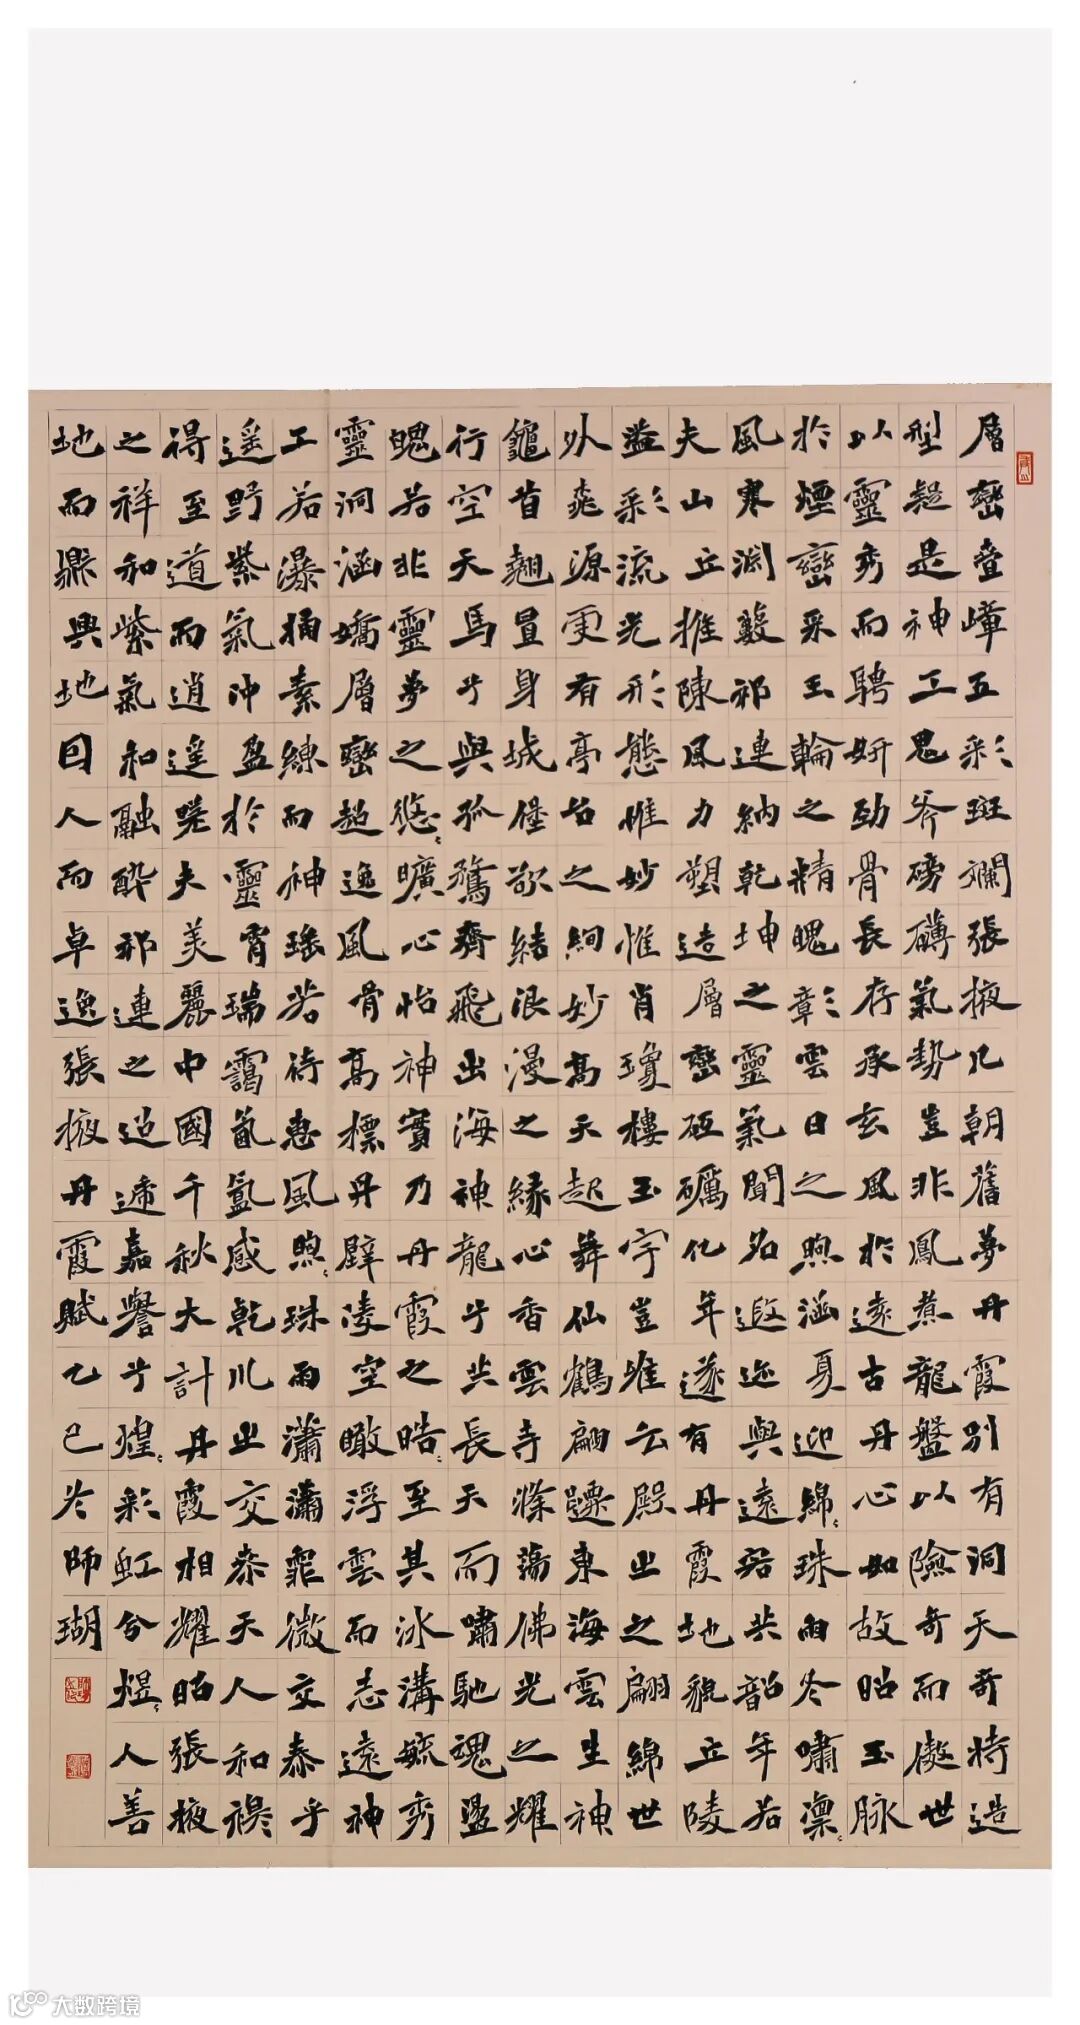 層巒叠嶂五彩斑斕張掖几朝舊夢丹霞別有洞天奇特造
型疑是神工思斧磅礴氣勢豈非鳳煮龍盤以險奇而傲世
以靈秀而騁妍勁骨長存承玄風於遠古丹心如故昭玉脉
於煙巒采玉輪之精魄彰雲日之煦涵夏迎綿〻珠雨冬嘯凛〻
風寒渊藪祁連納乾坤之靈氣聞名遐迩與遠谷共韶年若
夫山丘推陳風力塑造層巒砥礪化年遂有丹霞地貌丘陵
溢彩流光形態惟妙惟肖瓊樓玉宇豈惟云殿之翩綿世
外桃源更有亭台之絢妙高天起舞仙鶴翩躚東海雲生神
龜首翹昂身城堡欲結浪漫之緣心香雲寺滌蕩佛光之耀
行空天馬兮與孤鶩齊飛出海神龍兮共長天而嘯馳魂盪
魄若非靈夢之悠〻曠心怡神實乃丹霞之皓〻至其冰溝毓秀
靈洞涵嬌層巒超逸風骨高標丹壁凌空瞰浮雲而志遠神
工若瀑捅素練而神瑤若待惠風煦〻珠雨瀟瀟霏微交泰乎
遥野紫氣沖盈於靈霄瑞靄氤氳感乾川之交泰天人和禊
得至道而逍遥嘵夫美麗中國千秋大計丹霞相耀昭張掖
之祥和紫氣和融酔祁連之迢遞嘉譽兮煌〻彩虹兮煜〻人善
地而鼎興地因人而卓逸張掖丹霞賦乙巳冬師瑚
大数跨境